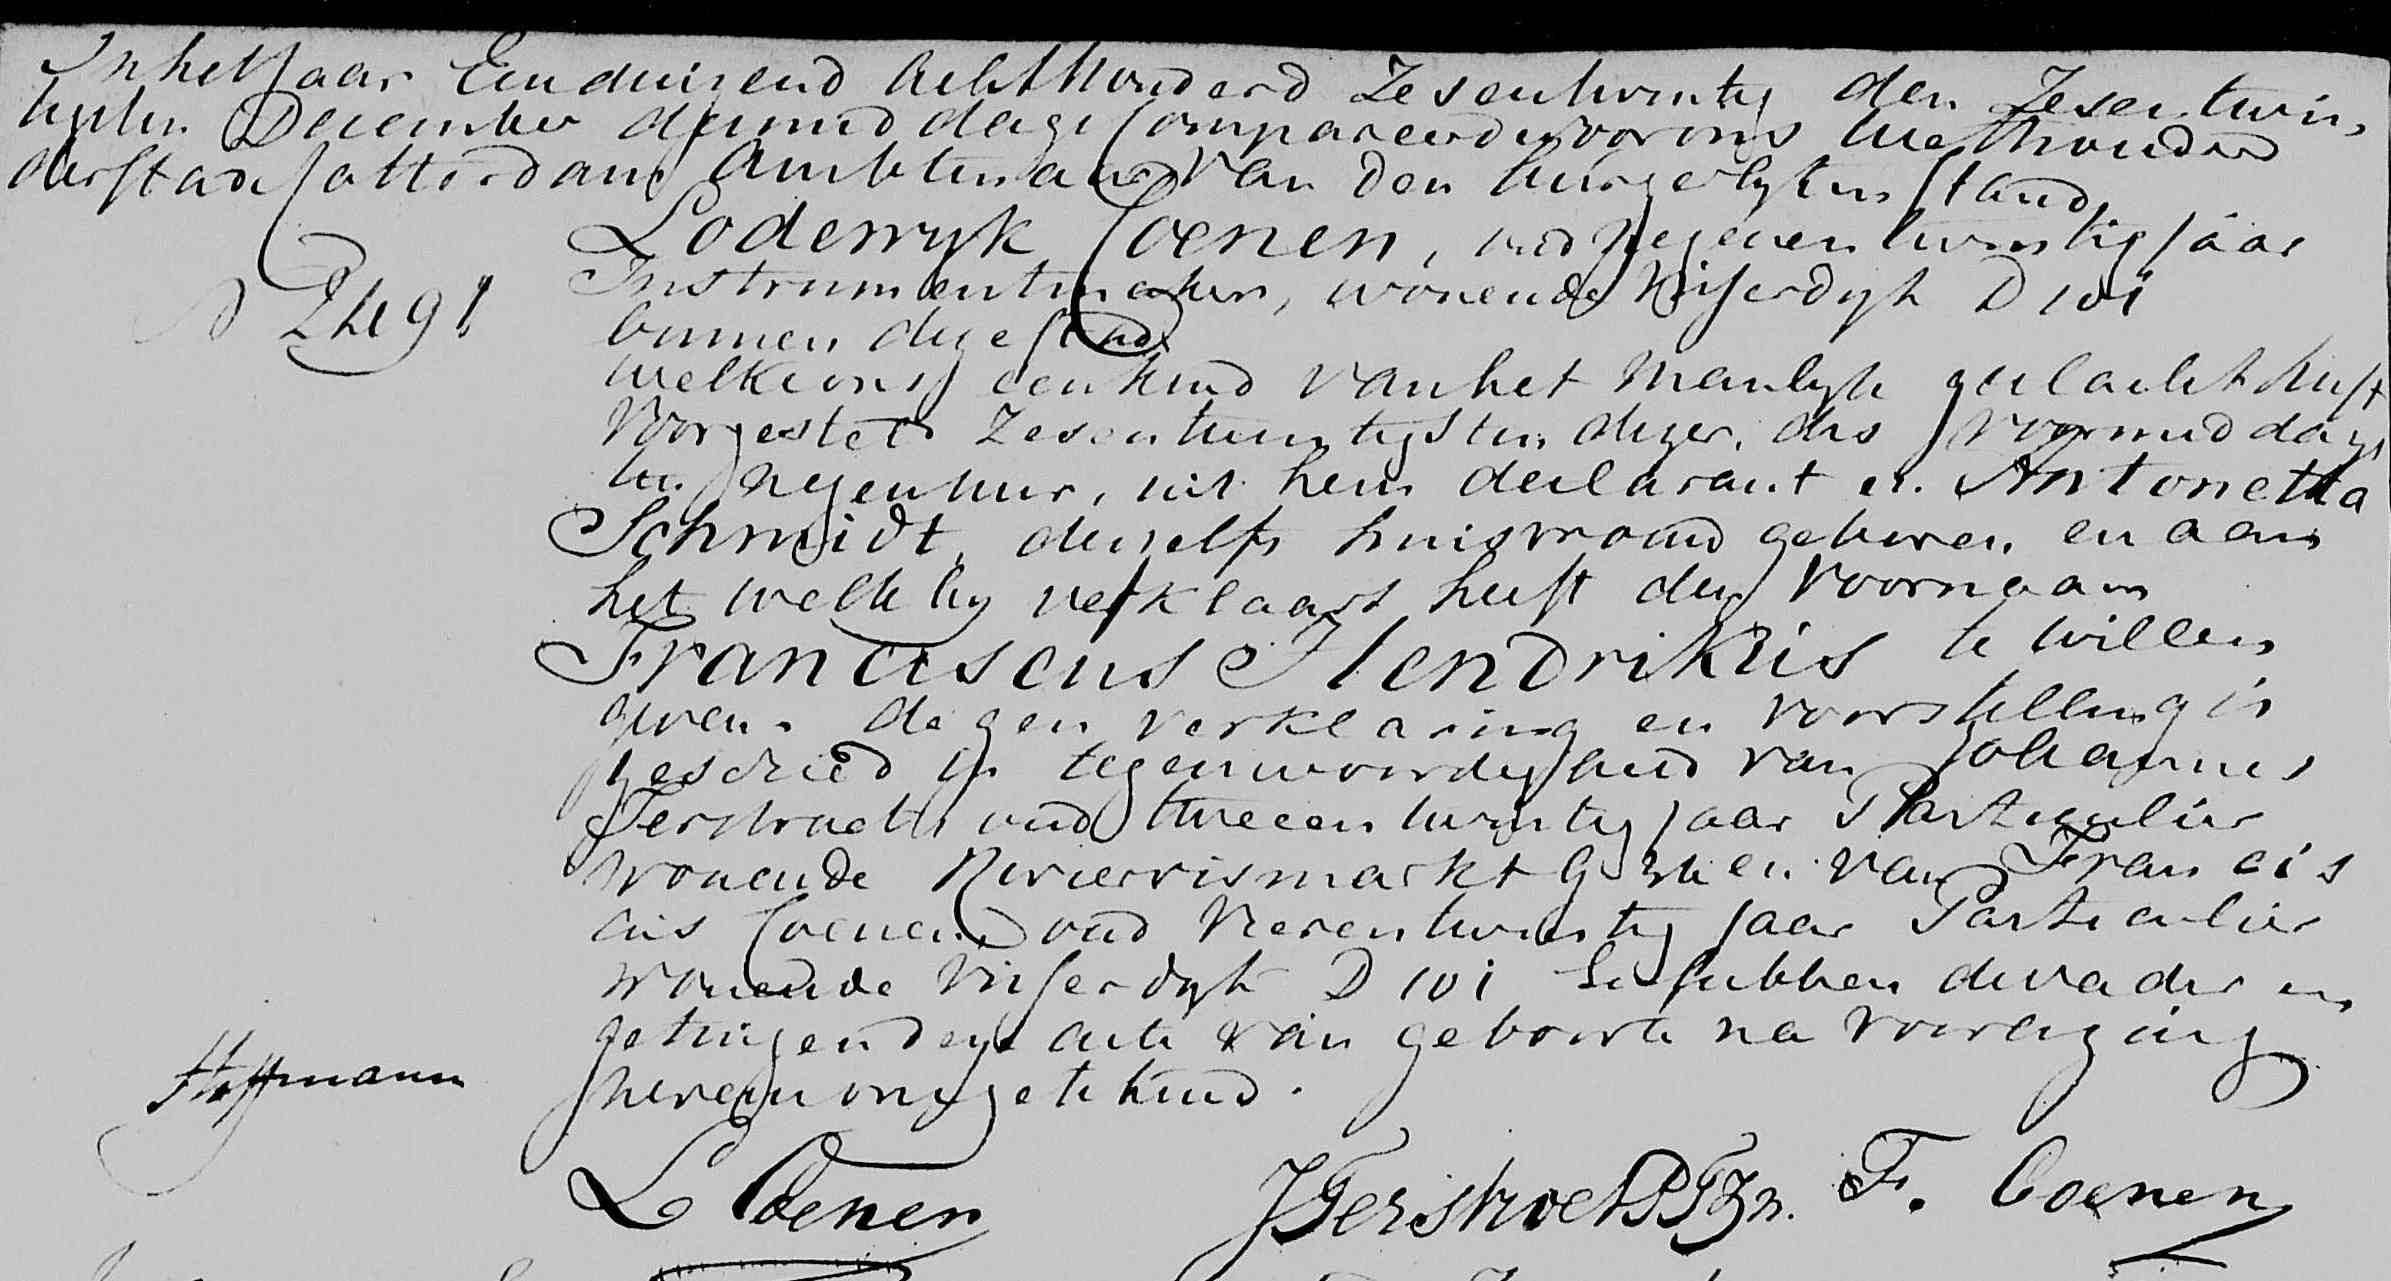 In het Jaar Eenduizend Achthonderd Zesentwintig den Zesentwin
tigsten December desmiddags Compareerde voor ons Wethouder
der stad Rotterdam Ambtenaar van den burgerlyken stand
Lodewyk Coenen, oud negenentwintig jaar
N 2491
Instrumentmaker, wonende Visserdyk D 101
binnen deze stad
welke ons een kind van het Manlyk geslacht heeft
voorgesteld Zesentwintigsten dezer, des voormiddags
ten negen uur, uit hem declarant en Antonetta
Schmidt, deszelfs huisvrouw geboren en aan
het welk hy verklaart heeft den Voornaam
Franciscus Hendrikus te willen
geven. dezen verklaring en voorstelling is
geschied in tegenwoordigheid van Johannes
oud tweeentwintig jaar Particulier
wonende Riviervismarkt G en van Francis
cus Coenen oud vierentwintig jaar Particulier
wonende Visserdyk D 101 hebben de vader en
getuigen deze acte van geboorte na voorlezing
nevens ons getekend.
Hoffmann
L Coenen
F. Coenen